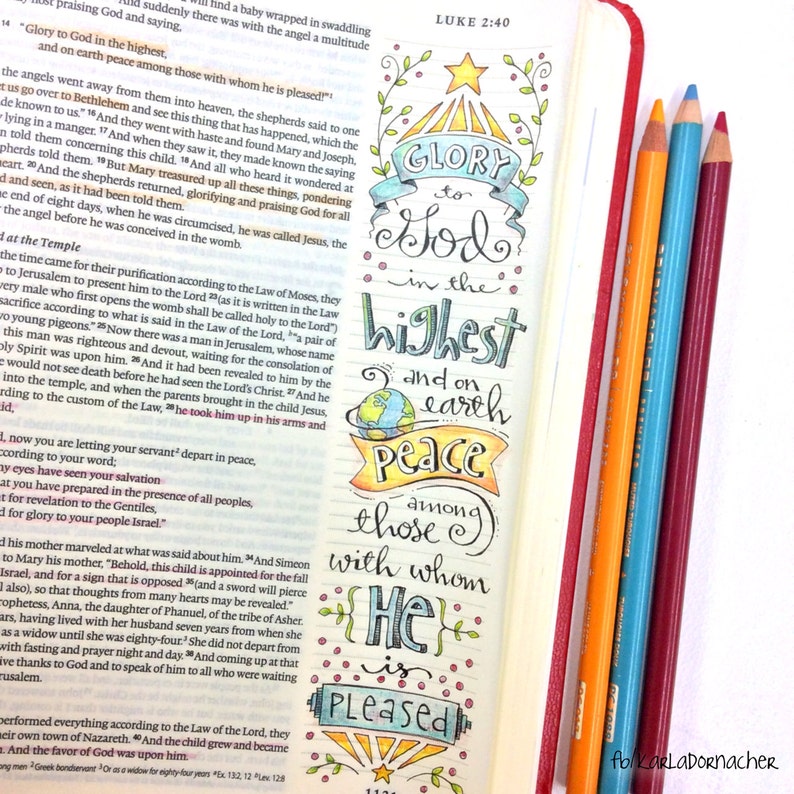 LUKE 2:40
will find a baby wrapped in swaddling
And suddenly there was with the angel a multitude
praising God and saying,
14 "Glory to God in the highest,
and on earth peace among those with whom he is pleased!"1
the angels went away from them into heaven, the shepherds said to one
us go over to Bethlehem and see this thing that has happened, which the
de known to us." 16 And they went with haste and found Mary and Joseph,
lying in a manger. 17 And when they saw it, they made known the saying
n told them concerning this child. 18 And all who heard it wondered at
epherds told them. 19 But Mary treasured up all these things, pondering
heart. 20 And the shepherds returned, glorifying and praising God for all
d and seen, as it had been told them.
e end of eight days, when he was circumcised, he was called Jesus, the
the angel before he was conceived in the womb.
d at the Temple
the time came for their purification according to the Law of Moses, they
to Jerusalem to present him to the Lord 23 (as it is written in the Law
very male who first opens the womb shall be called holy to the Lord")
sacrifice according to what is said in the Law of the Lord, b "a pair of
wo young pigeons." 25 Now there was a man in Jerusalem, whose name
this man was righteous and devout, waiting for the consolation of
oly Spirit was upon him. 26 And it had been revealed to him by the
e would not see death before he had seen the Lord's Christ. 27 And he
into the temple, and when the parents brought in the child Jesus,
ording to the custom of the Law, 28 he took him up in his arms and
said,
, now you are letting your servant2 depart in peace,
ccording to your word;
my eyes have seen your salvation
at you have prepared in the presence of all peoples,
t for revelation to the Gentiles,
d for glory to your people Israel."
d his mother marveled at what was said about him. 34 And Simeon
to Mary his mother, "Behold, this child is appointed for the fall
Israel, and for a sign that is opposed 35 (and a sword will pierce
l also), so that thoughts from many hearts may be revealed."
rophetess, Anna, the daughter of Phanuel, of the tribe of Asher.
ars, having lived with her husband seven years from when she
as a widow until she was eighty-four.3 She did not depart from
with fasting and prayer night and day. 38 And coming up at that
ive thanks to God and to speak of him to all who were waiting
erusalem.
performed everything according to the Law of the Lord, they
heir own town of Nazareth. 40 And the child grew and became
. And the favor of God was upon him.
ong men 2 Greek bondservant 3 Or as a widow for eighty-four years a Ex. 13:2, 12 b Lev. 12:8
GLORY
to
God
in the
highest
and on
earth
PEACE
among
those
with whom
{HE}
is
PLEASED
fb/KARLADORNACHER